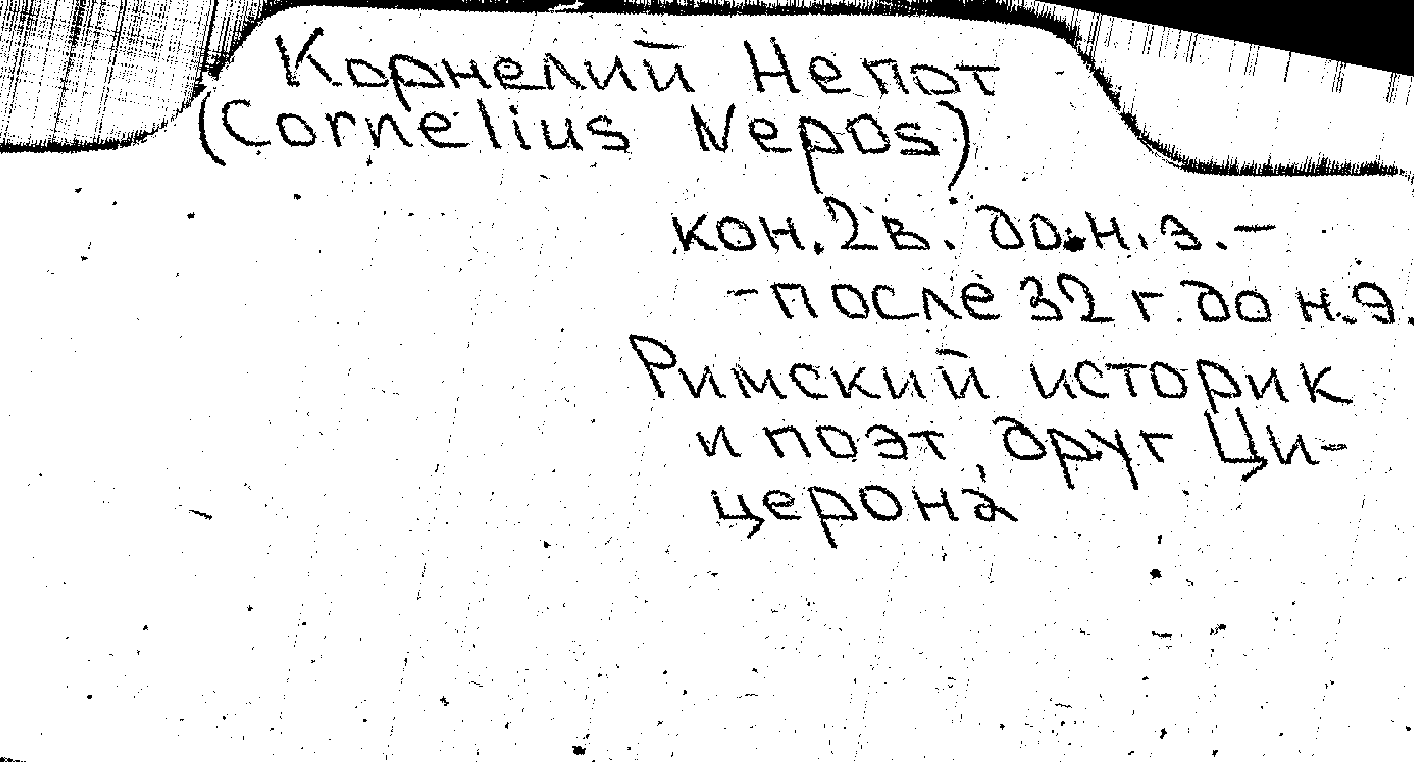 Корнелий Непот
(Cornelius Nepos)
кон. 2 в. до н. э. –
– после 32 г. до н. э.
Римский историк
и поэт, друг Ци-
церона